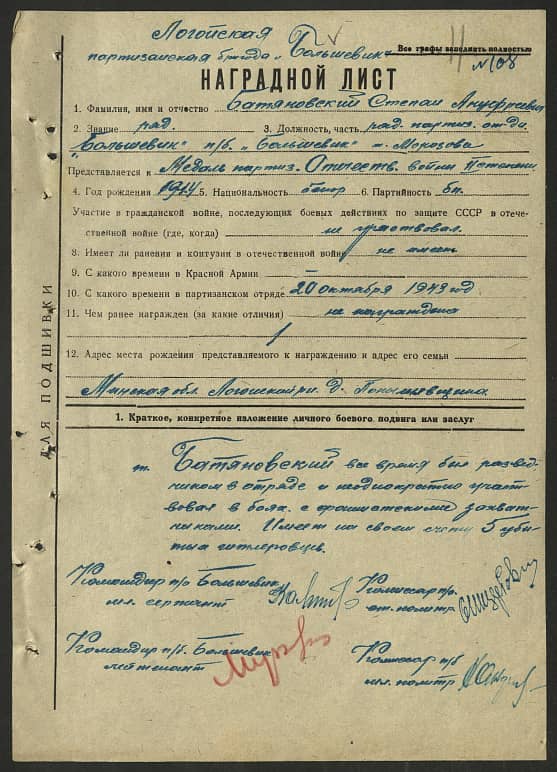 Логойская
партизанская бригада „Большевик"
Все графы заполнять полностью
№108
НАГРАДНОЙ ЛИСТ
1. Фамилия, имя и отчество Батяновский Степан Ануфриевич
2. Звание ряд. 3. Должность, часть ряд. партиз. от-да
"Большевик" п/б. "Большевик"
Представляется к Медаль партиз. Отечеств. войны
4. Год рождения 1914 5. Национальность белор 6. Партийность бп.
Участие в гражданской войне, последующих боевых действиях по защите СССР в отече-
ственной войне (где, когда) не участвовал.
8. Имеет ли ранения и контузии в отечественной войне не имеет
9. С какого времени в Красной Армии —
10. С какого времени в партизанском отряде 20 октября 1943 год.
11. Чем ранее награжден (за какие отличия)
12. Адрес места рождения представляемого к награждению и адрес его семьи
Минская обл. Логойский р-н. д.
ДЛЯ ПОДШИВКИ
1. Краткое, конкретное изложение личного боевого подвига или заслуг
т. Батяновский все время был развед-
чиком в отряде и неоднократно участ-
вовал в боях с фашистскими захват-
чиками. Имеет на своем счету 5 уби-
тых гитлеровцев.
Командир п/о Большевик
мл. сержант
Комиссар п/о.
ст. политр
Командир п/б. Большевик
лейтенант
Комиссар п/б
мл. политр